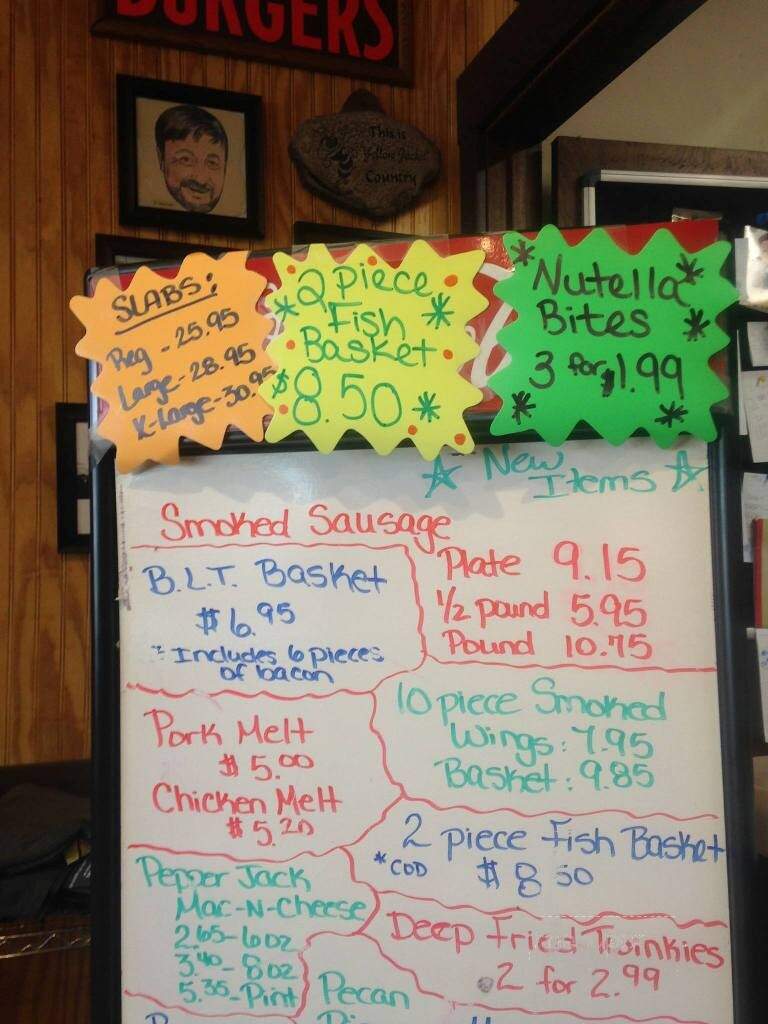 BURGERS
This is
Yellow Jacket
Country
SLABS:
Reg - 25.95
Large - 28.95
X-Large - 30.95
2 Piece
Fish
Basket
$8.50
Nutella
Bites
3 for $1.99
New
Items
Smoked Sausage
Plate 9.15
1/2 pound 5.95
Pound 10.75
B.L.T. Basket
$6.95
* Includes 6 pieces
of bacon
10 piece Smoked
Wings: 7.95
Basket: 9.85
Pork Melt
$5.00
Chicken Melt
$5.20
2 piece Fish Basket
*COD $8.50
Pepper Jack
Mac-N-Cheese
2.65-6oz
3.40-8oz
5.35-Pint
Deep Fried Twinkies
2 for 2.99
Pecan